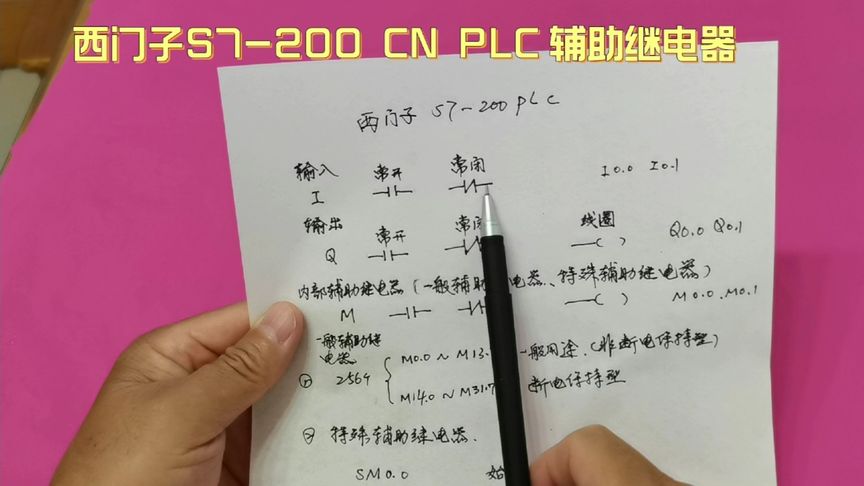 西门子S7-200 CN PLC 辅助继电器
西门子 S7-200 PLC
输入 常开 常闭
I I0.0 I0.1
输出 常开 常闭 线圈
Q Q0.0 Q0.1
内部辅助继电器(一般辅助 电器、特殊辅助继电器)
M M0.0、M0.1
一般辅助继
电器
① 256个 M0.0~M13. 一般用途、(非断电保持型)
M14.0~M31.7 断电保持型
② 特殊辅助继电器.
SM0.0 始